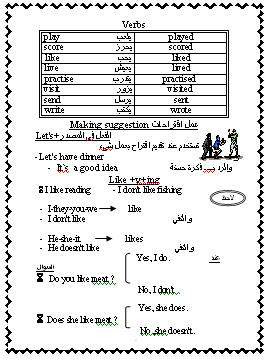 Verbs
play يلعب played
score يحرز scored
like يحب liked
live يعيش lived
practise يتدرب practised
visit يزور visited
send يرسل sent
write يكتب wrote
Making suggestion عمل اقتراحات
Let's+ الفعل في المصدر
تستخدم عند تقديم اقتراح بعمل شيء
- Let's have dinner
- It's a good idea والرد عليه فكرة حسنة
Like +v+ing
I like reading - I don't like fishing
لاحظ
- I-they-you-we → like
- I don't like
- He-she-it → likes
- He doesn't like
السؤال
Yes, I do.
Do you like meat ?
No, I don't
Yes, she does.
Does she like meat ?
No ,she doesn't.